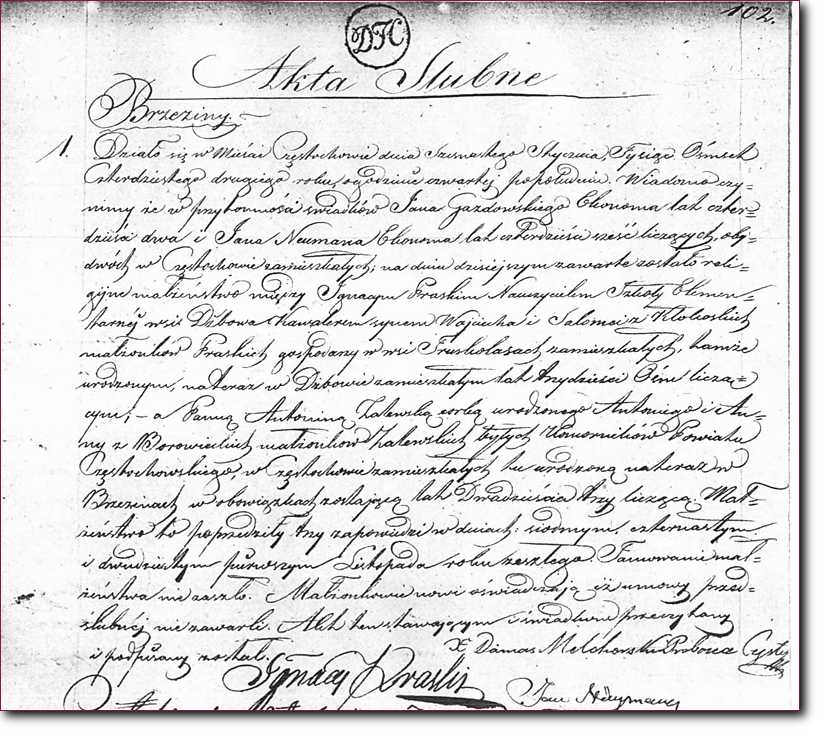 102.
DK
Akta Slubne
Brzeziny.
1. Działo się w Mieście Częstochowie dnia Szesnastego Stycznia, Tysiąc Ośmset
Czterdziestego drugiego roku, o godzinie czwartej popołudniu. Wiadomo czy-
nimy że w przytomności świadków Jana Gazdowskiego Ekonoma lat czter-
dzieści dwa i Jana Neumana Ekonoma lat czterdzieści sześć liczących, oby-
dwóch w Częstochowie zamieszkałych; na dniu dzisiejszym zawarte zostało reli-
gijne małżeństwo między Ignacym Fraskim Nauczycielem Szkoły Elemen-
tarnéj w wsi Dźbowa Kawalerem synem Wojciecha i Salomei z Kłobockich
małżonków Fraskich gospodarzy w wsi Truskolasach zamieszkałych, tamże
urodzonym, na teraz w Dzbowie zamieszkałym lat trzydzieści Ośm liczą-
cym; – a Panną Antoniną Zalewską córką urodzonego Antoniego i An-
ny z Borowieckich małżonków Zalewskich byłych Komorników Powiatu
Częstochowskiego, w Częstochowie zamieszkałych tu urodzoną na teraz w
Brzezinach w obowiązkach zostającą lat Dwadzieścia trzy liczącą. Mał-
żeństwo to poprzedziły trzy zapowiedzi w dniach: siódmym, czternastym
i dwudziestym pierwszym Listopada roku zeszłego. Tamowanie mał-
żeństwa nie zaszło. Małżonkowie nowi oświadczają iż umowy przed-
ślubnéj nie zawarli. Akt ten stawającym i świadkom przeczytany
i podpisany został. X. Damas Melchorski Proboszcz
Ignacy Fraski Jan Neyman